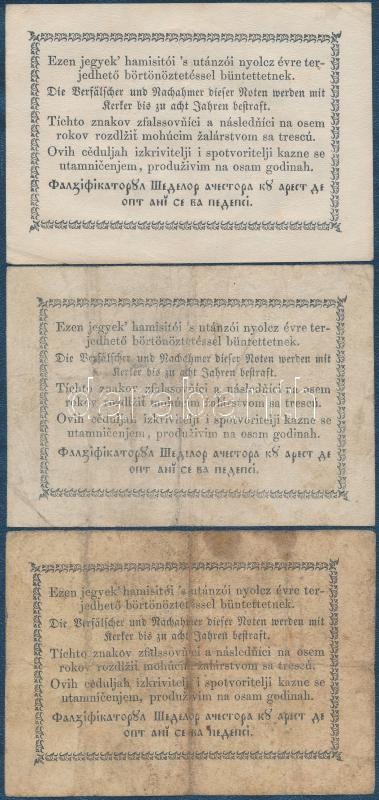 Ezen jegyek' hamisitói 's utánzói nyolcz évre ter-
jedhető börtönöztetéssel büntettetnek.
Die Verfälscher und Nachahmer dieser Noten werden mit
Kerker bis zu acht Jahren bestraft.
Tíchto znakov zfalssovňíci a následňíci na osem
rokov rozdlžií mohúcim žalárstvom sa trescú.
Ovih cěduljah izkrivitelji i spotvoritelji kazne se
utamničenjem, produživim na osam godinah.
Фалзіфікаторꙋл Шеделор ачестора кꙋ арест де
опт анĭ се ва педепсі.
Ezen jegyek' hamisitói 's utánzói nyolcz évre ter-
jedhető börtönöztetéssel büntettetnek.
Die Verfälscher und Nachahmer dieser Noten werden mit
Kerker bis zu acht Jahren bestraft.
Tíchto znakov zfalssovňíci a následňíci na osem
rokov rozdlžií mohúcim žalárstvom sa trescú.
Ovih cěduljah izkrivitelji i spotvoritelji kazne se
utamničenjem, produživim na osam godinah.
Фалзіфікаторꙋл Шеделор ачестора кꙋ арест де
опт анĭ се ва педепсі.
Ezen jegyek' hamisitói 's utánzói nyolcz évre ter-
jedhető börtönöztetéssel büntettetnek.
Die Verfälscher und Nachahmer dieser Noten werden mit
Kerker bis zu acht Jahren bestraft.
Tíchto znakov zfalssovňíci a následňíci na osem
rokov rozdlžií mohúcim žalárstvom sa trescú.
Ovih cěduljah izkrivitelji i spotvoritelji kazne se
utamničenjem, produživim na osam godinah.
Фалзіфікаторꙋл Шеделор ачестора кꙋ арест де
опт анĭ се ва педепсі.